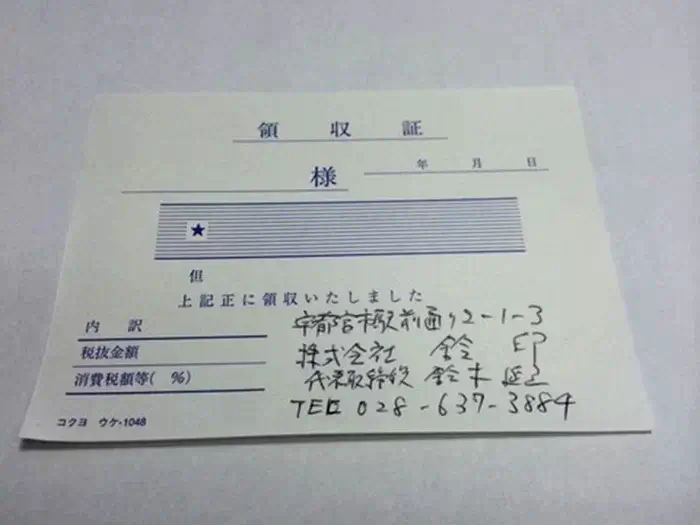 領収証
年 月 日
様
★
但
上記正に領収いたしました
内訳
税抜金額
消費税額等( %)
コクヨ ウケ-1048
宇都宮市駅前通り2-1-3
株式会社 鈴 印
代表取締役 鈴木 延
TEL 028-637-3884